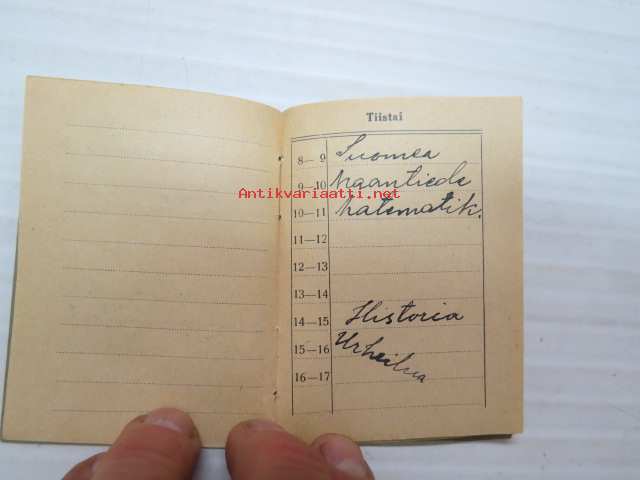 Tiistai
8—9 Suomea
9—10 Maantiede
Antikvariaatti.net
10—11 Matematik.
11—12
12—13
13—14
14—15 Historia
15—16 Urheilua
16—17